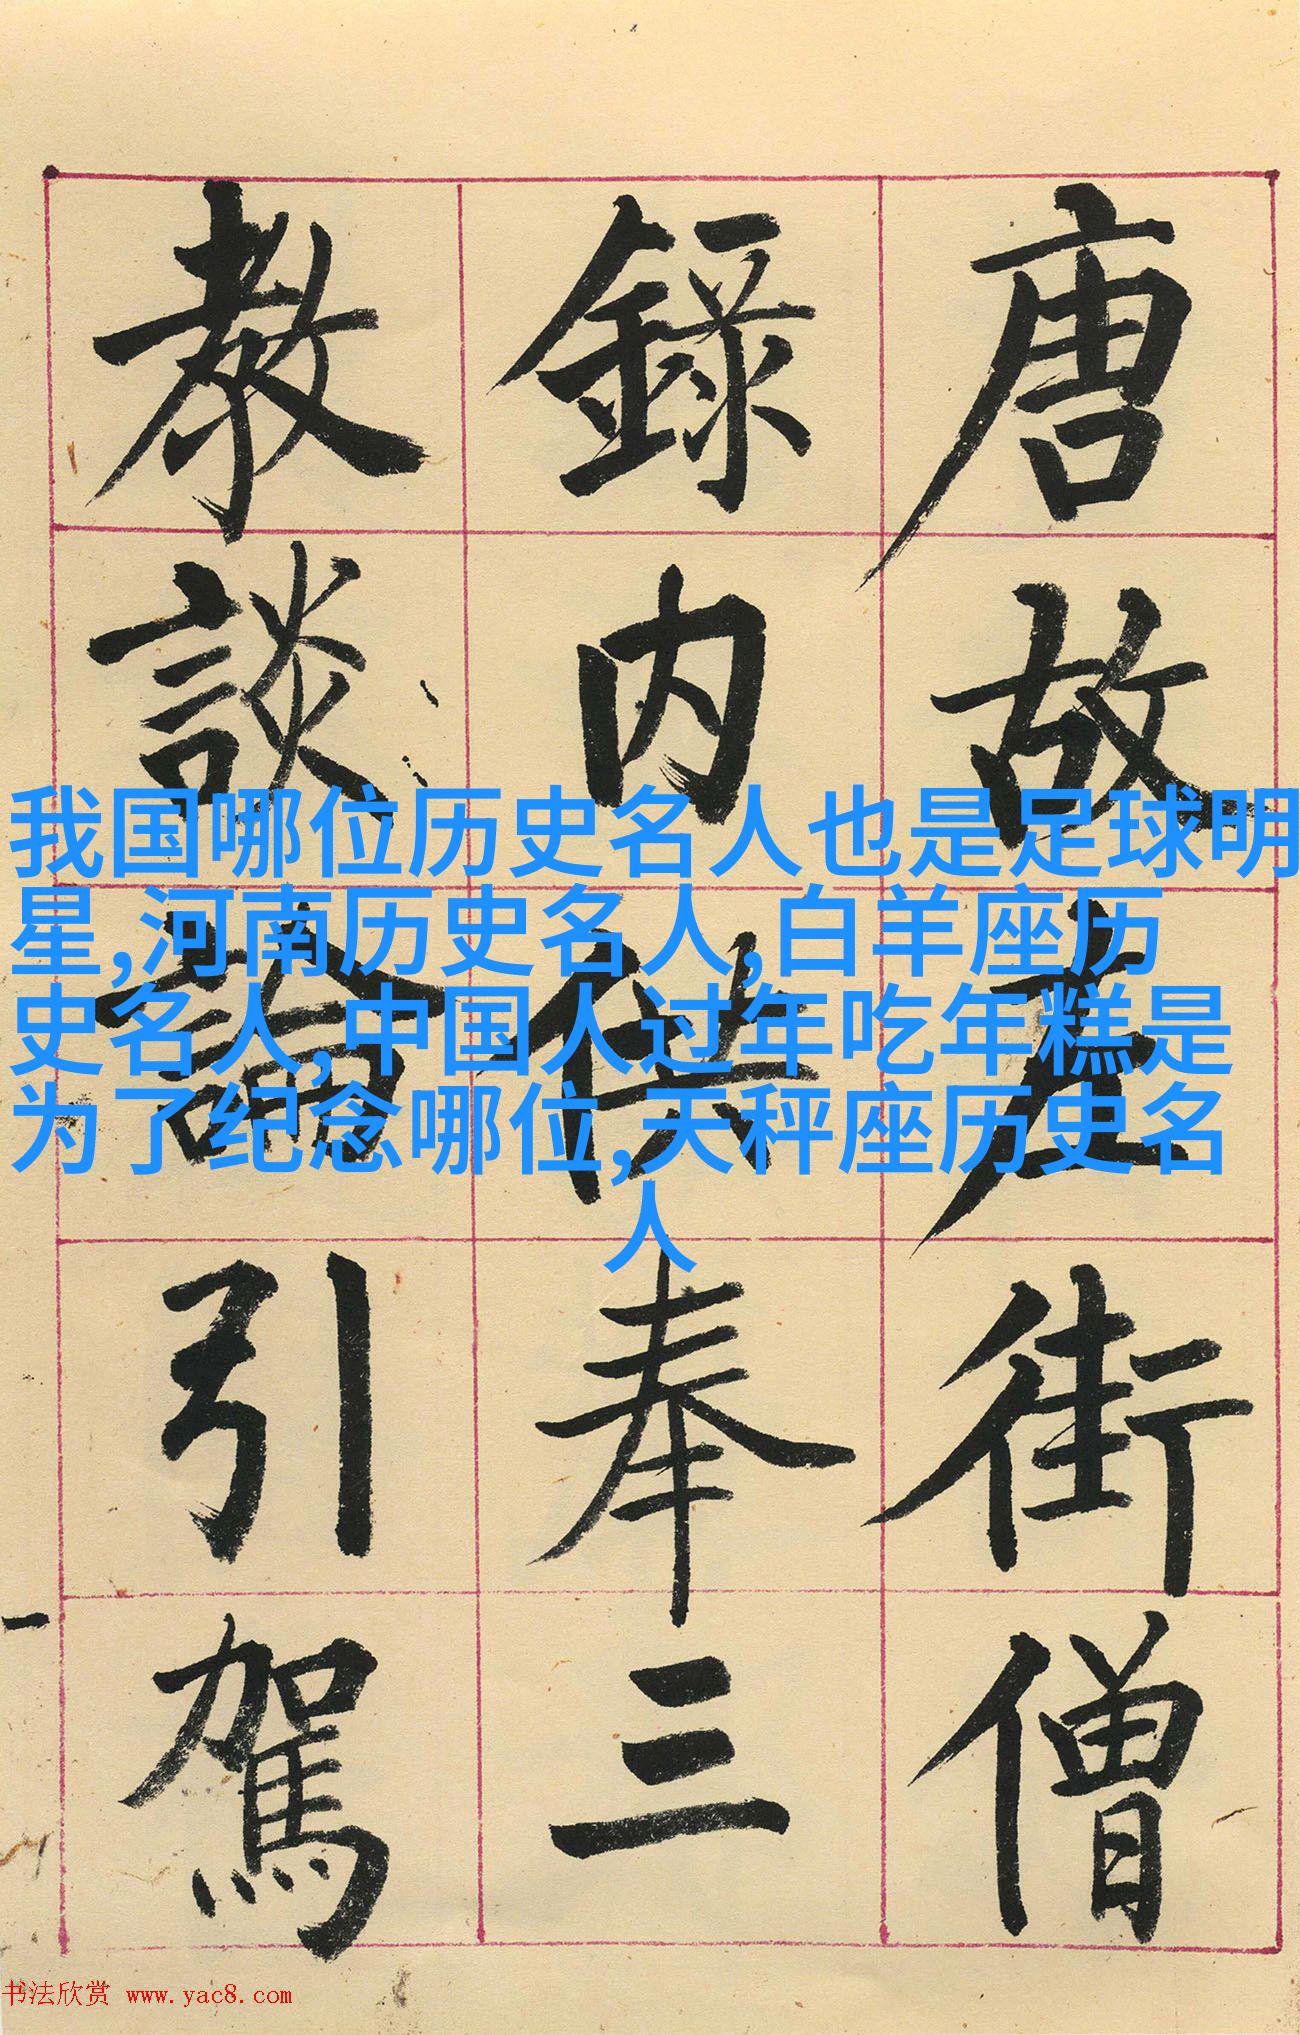 唐故左街僧
錄内供奉三
教談論引駕
我国哪位历史名人也是足球明
星,河南历史名人,白羊座历
史名人,中国人过年吃年糕是
为了纪念哪位,天秤座历史名
人
书法欣赏 www.yac8.com